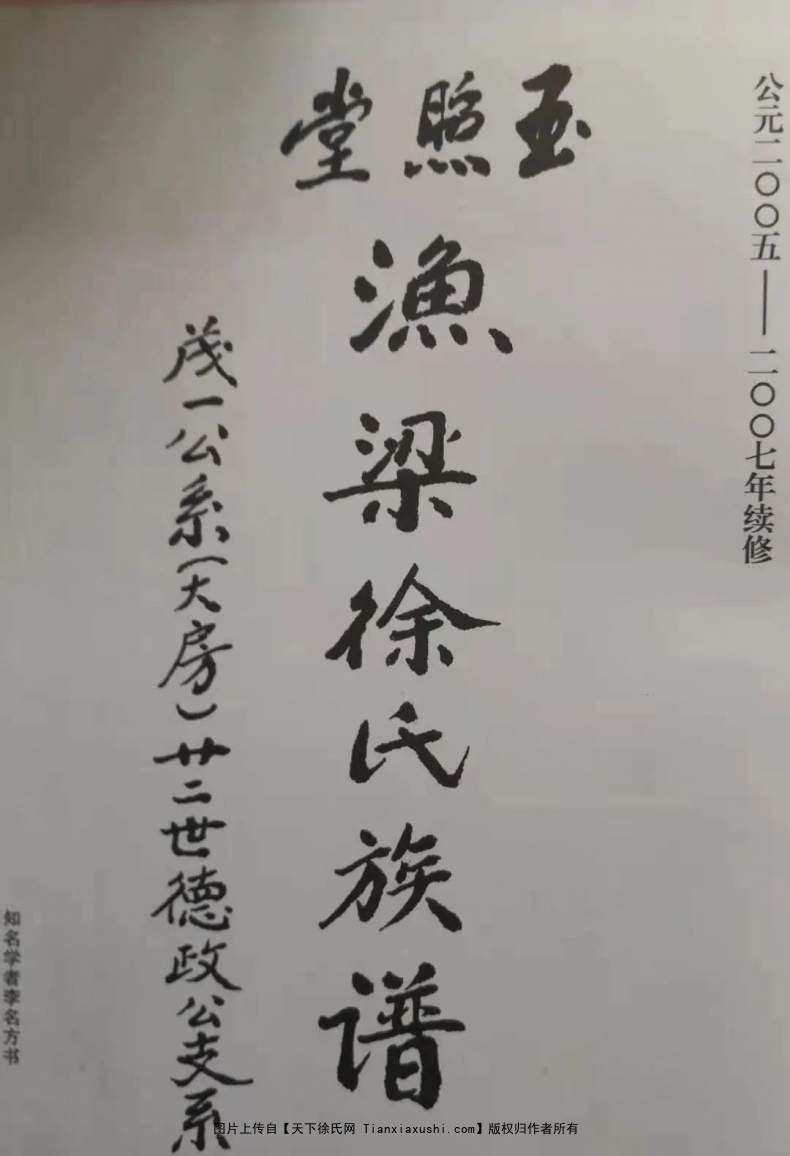 公元二〇〇五——二〇〇七年续修
玉照堂
漁梁徐氏族谱
茂一公系(大房)廿二世德政公支系
知名学者李名方书
图片上传自【天下徐氏网 Tianxiaxushi.com】版权归作者所有